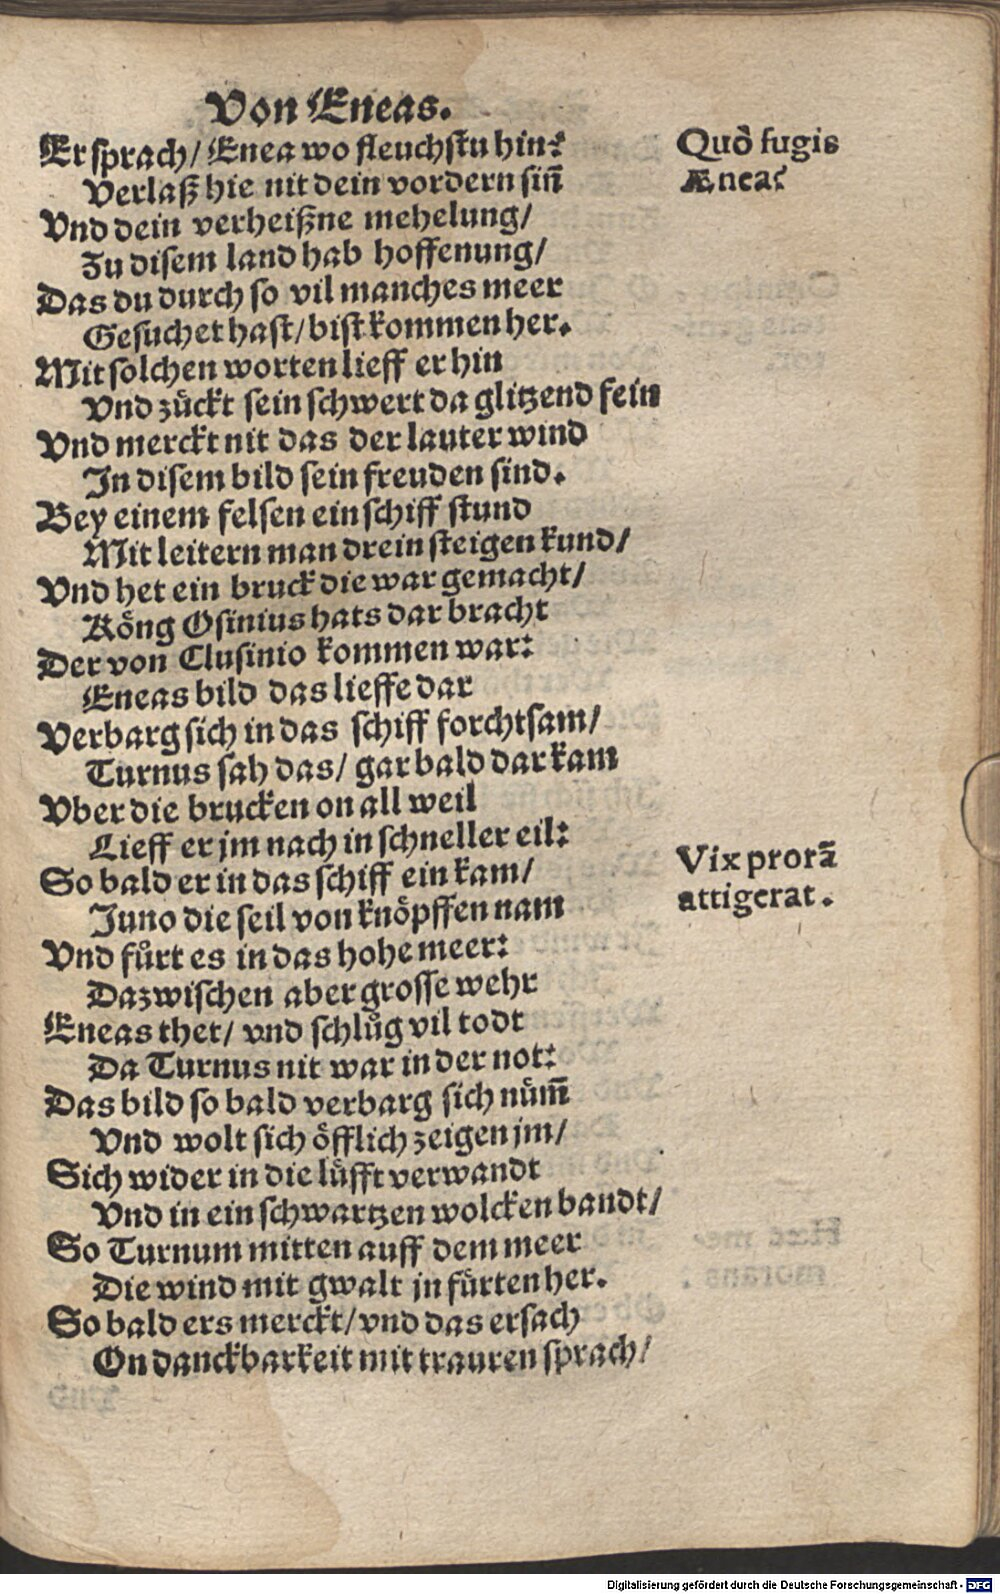 Von Eneas.
Er sprach/ Enea wo fleuchstu hin:
Verlaß hie nit dein vordern siñ
Vnd dein verheißne mehelung/
Zu disem land hab hoffenung/
Das du durch so vil manches meer
Gesuchet hast/ bist kommen her.
Mit solchen worten lieff er hin
Vnd zückt sein schwert da glitzend fein
Vnd merckt nit das der lauter wind
In disem bild sein freuden sind.
Bey einem felsen ein schiff stund
Mit leitern man drein steigen kund/
Vnd het ein bruck die war gemacht/
Köng Osinius hats dar bracht
Der von Clusinio kommen war:
Eneas bild das lieffe dar
Verbarg sich in das schiff forchtsam/
Turnus sah das/ gar bald dar kam
Vber die brucken on all weil
Lieff er jm nach in schneller eil:
So bald er in das schiff ein kam/
Juno die seil von knöpffen nam
Vnd fůrt es in das hohe meer:
Dazwischen aber grosse wehr
Eneas thet/ vnd schlůg vil todt
Da Turnus nit war in der not:
Das bild so bald verbarg sich nüm̃
Vnd wolt sich öfflich zeigen jm/
Sich wider in die lüfft verwandt
Vnd in ein schwartzen wolcken bandt/
So Turnum mitten auff dem meer
Die wind mit gwalt jn fürten her.
So bald ers merckt/ vnd das ersach
On danckbarkeit mit trauren sprach/
Quò fugis
Æneaς
Vix prorã
attigerat.
Digitalisierung gefördert durch die Deutsche Forschungsgemeinschaft - DFG